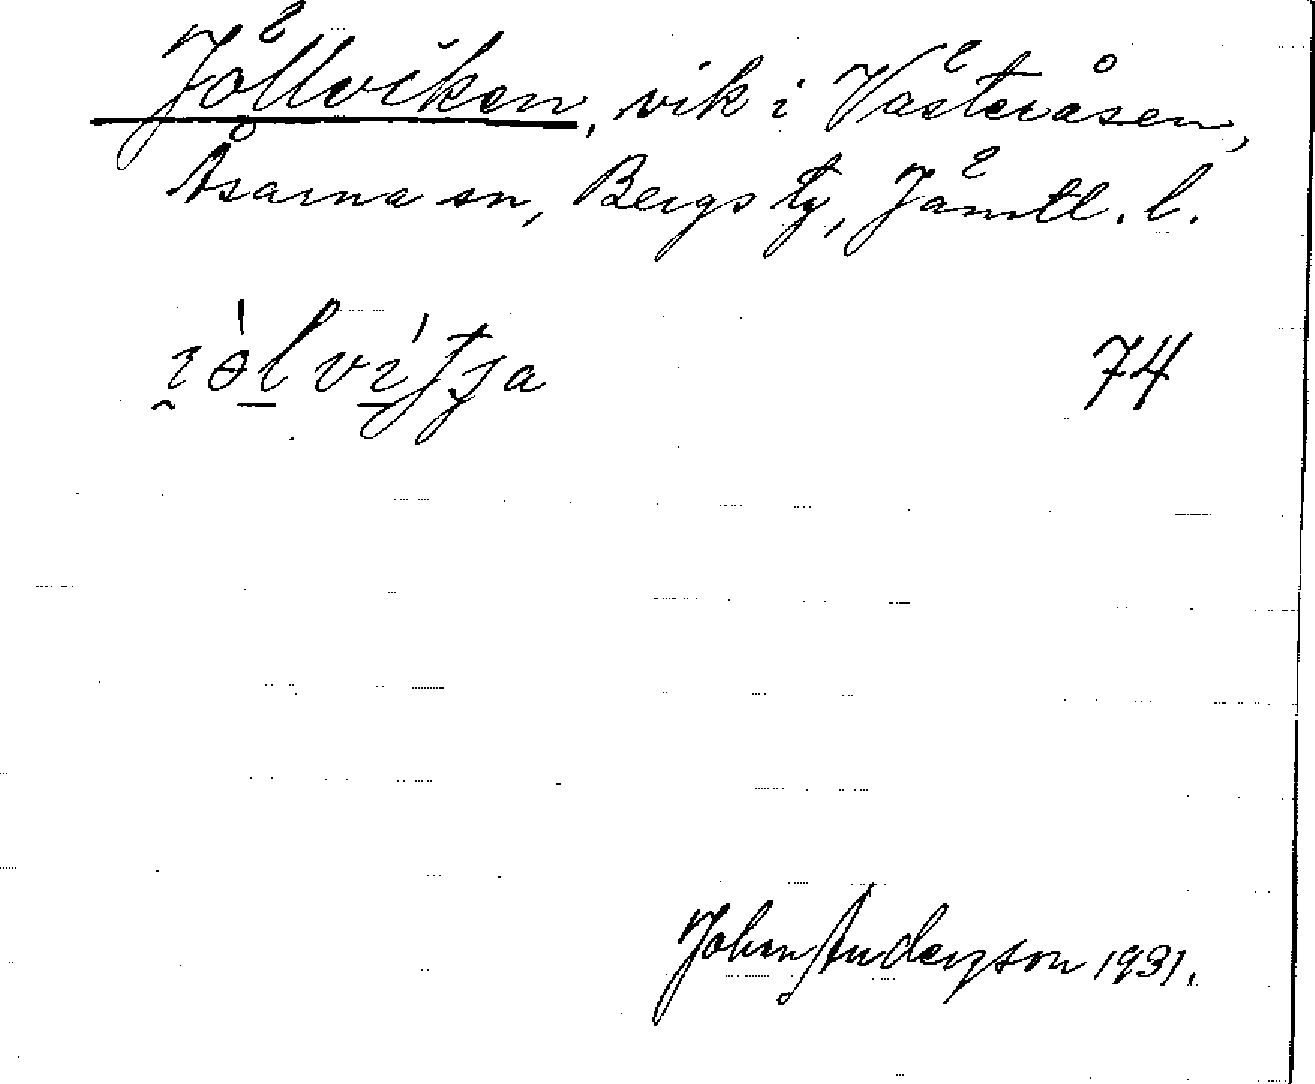 Jällviken, vik i Västeråsen,
Åsarna sn, Bergs tg, Jämtl. l.
74
John Anderzson 1931.